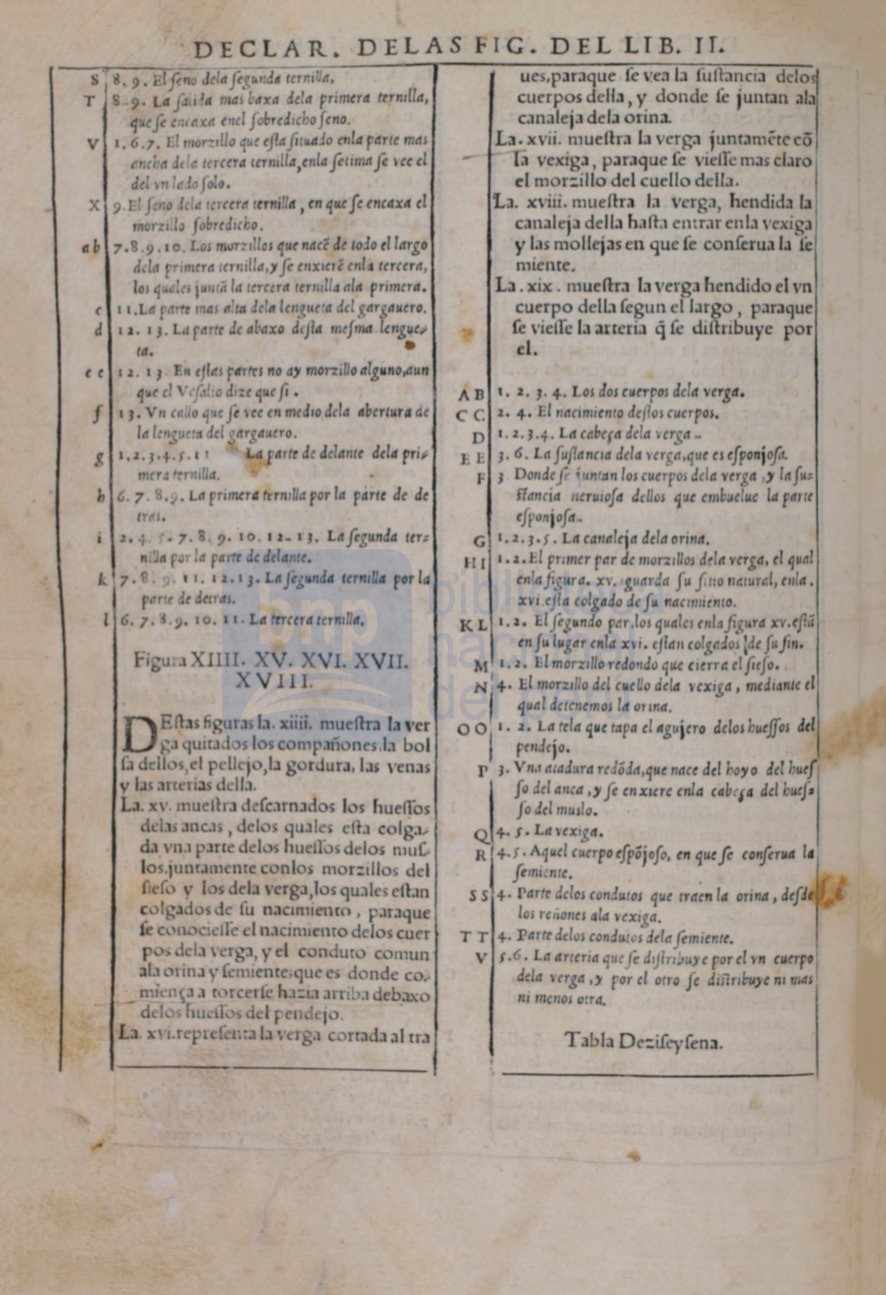 DECLAR. DELAS FIG. DEL LIB. II.
S 8. 9. El ſeno dela ſegunda ternilla,
T 8. 9. La ſalida mas baxa dela primera ternilla,
que ſe encaxa enel ſobredicho ſeno.
V 1. 6. 7. El morzillo que eſta ſituado enla parte mas
ancha dela tercera ternilla, enla ſetima ſe vee el
del vn lado ſolo.
X 9. El ſeno dela tercera ternilla, en que ſe encaxa el
morzillo ſobredicho.
a b 7. 8. 9. 10. Los morzillos que nacẽ de todo el largo
dela primera ternilla, y ſe enxierẽ enla tercera,
los quales juntã la tercera ternilla ala primera.
c 11. La parte mas alta dela lengueta del gargauero.
d 12. 13. La parte de abaxo deſta meſma lengue-
ta.
e e 12. 13. En eſtas partes no ay morzillo alguno, aun
que el Veſalio dize que ſi.
f 13. Vn callo que ſe vee en medio dela abertura de
la lengueta del gargauero.
g 1. 2. 3. 4. 5. 11 La parte de delante dela pri-
mera ternilla.
h 6. 7. 8. 9. La primera ternilla por la parte de de
tras.
i 2. 4. 5. 7. 8. 9. 10. 12. 13. La ſegunda ter-
nilla por la parte de delante.
k 7. 8. 9. 11. 12. 13. La ſegunda ternilla por la
parte de detras.
l 6. 7. 8. 9. 10. 11. La tercera ternilla.
Figura XIIII. XV. XVI. XVII.
XVIII.
DEſtas figuras la. xiiii. mueſtra la ver
ga quitados los compañones, la bol
ſa dellos, el pellejo, la gordura, las venas
y las arterias della.
La. xv. mueſtra deſcarnados los hueſſos
delas ancas, delos quales eſta colga-
da vna parte delos hueſſos delos muſ-
los, juntamente conlos morzillos del
ſieſo y los dela verga, los quales eſtan
colgados de ſu nacimiento, paraque
ſe conocieſſe el nacimiento delos cuer
pos dela verga, y el conduto comun
ala orina y ſemiente, que es donde co-
miença a torcerſe hazia arriba debaxo
delos hueſſos del pendejo.
La. xvi. repreſenta la verga cortada al tra
ues, paraque ſe vea la ſuſtancia delos
cuerpos della, y donde ſe juntan ala
canaleja dela orina.
La. xvii. mueſtra la verga juntamẽte cõ
la vexiga, paraque ſe vieſſe mas claro
el morzillo del cuello della.
La. xviii. mueſtra la verga, hendida la
canaleja della haſta entrar enla vexiga
y las mollejas en que ſe conſerua la ſe
miente.
La. xix. mueſtra la verga hendido el vn
cuerpo della ſegun el largo, paraque
ſe vieſſe la arteria q̃ ſe diſtribuye por
el.
A B 1. 2. 3. 4. Los dos cuerpos dela verga.
C C 2. 4. El nacimiento deſtos cuerpos.
D 1. 2. 3. 4. La cabeça dela verga..
E E 3. 6. La ſuſtancia dela verga, que es eſponjoſa.
F 3 Donde ſe juntan los cuerpos dela verga, y la ſu-
ſtancia neruioſa dellos que embuelue la parte
eſponjoſa..
G 1. 2. 3. 5. La canaleja dela orina.
H I 1. 2. El primer par de morzillos dela verga, el qual
enla figura. xv. guarda ſu ſitio natural, enla.
xvi. eſta colgado de ſu nacimiento.
K L 1. 2. El ſegundo par, los quales enla figura xv. eſtã
en ſu lugar enla xvi. eſtan colgados de ſu fin.
M 1. 2. El morzillo redondo que cierra el ſieſo.
N 4. El morzillo del cuello dela vexiga, mediante el
qual detenemos la orina.
O O 1. 2. La tela que tapa el agujero delos hueſſos del
pendejo.
P 3. Vna atadura redõda, que nace del hoyo del hueſ
ſo del anca, y ſe enxiere enla cabeça del hueſ-
ſo del muslo.
Q 4. 5. La vexiga.
R 4. 5. Aquel cuerpo eſpõjoſo, en que ſe conſerua la
ſemiente.
S S 4. Parte delos condutos que traen la orina, deſde
los reñones ala vexiga.
T T 4. Parte delos condutos dela ſemiente.
V 5. 6. La arteria que ſe diſtribuye por el vn cuerpo
dela verga, y por el otro ſe diſtribuye ni mas
ni menos otra.
Tabla Deziſeyſena.